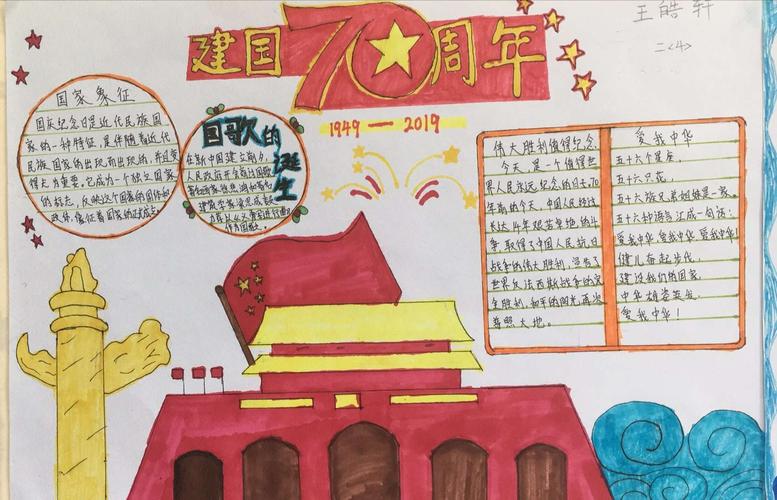 建国70周年
王皓轩
二<4>
1949—2019
国家象征
国庆纪念日是近代民族国
家的一种特征,是伴随着近代
民族国家的出现而出现的,并且变
得尤为重要。它成为一个独立国家
的标志,反映这个国家的国体和
政体,象征着国家的
国歌的诞生
在新中国建立前夕,
人民政府开会商讨国歌
著名画家徐悲鸿和著名
建筑学家梁思成都
力荐以义勇军进行曲
作为国歌
伟大胜利值得纪念
今天,是一个值得世
界人民永远纪念的日子,70
年前的今天,中国人民经过
长达14年艰苦卓绝的斗
争,取得了中国人民抗日
战争的伟大胜利,宣告了
世界反法西斯战争的完
全胜利,和平的阳光再次
普照大地。
爱我中华
五十六个星座,
五十六只花,
五十六族兄弟姐妹是一家。
五十六种语言汇成一句话:
爱我中华 爱我中华 爱我中华!
健儿奋起步伐,
建设我们的国家,
中华雄姿英发,
爱我中华!